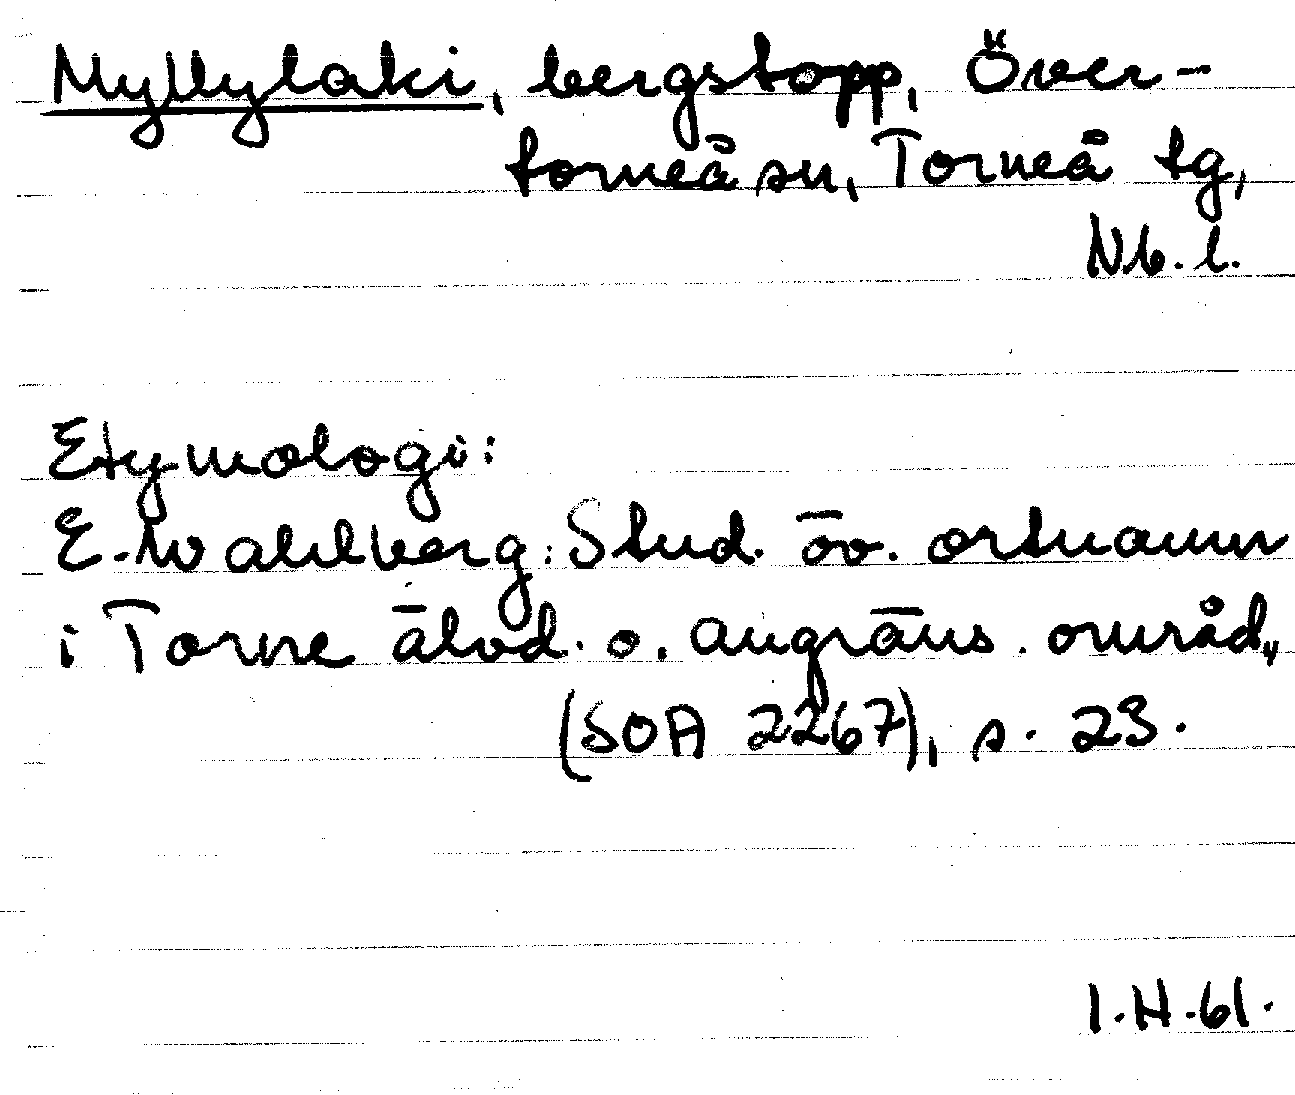 Myllylaki, bergstopp, Över-
torneå sn, Torneå tg,
Nb. l.
Etymologi:
E. Wahlberg: Stud. öv. ortnamn
i Torne älvd. o. angräns. områd.,
(SOA 2267), s. 23.
I.H.61.